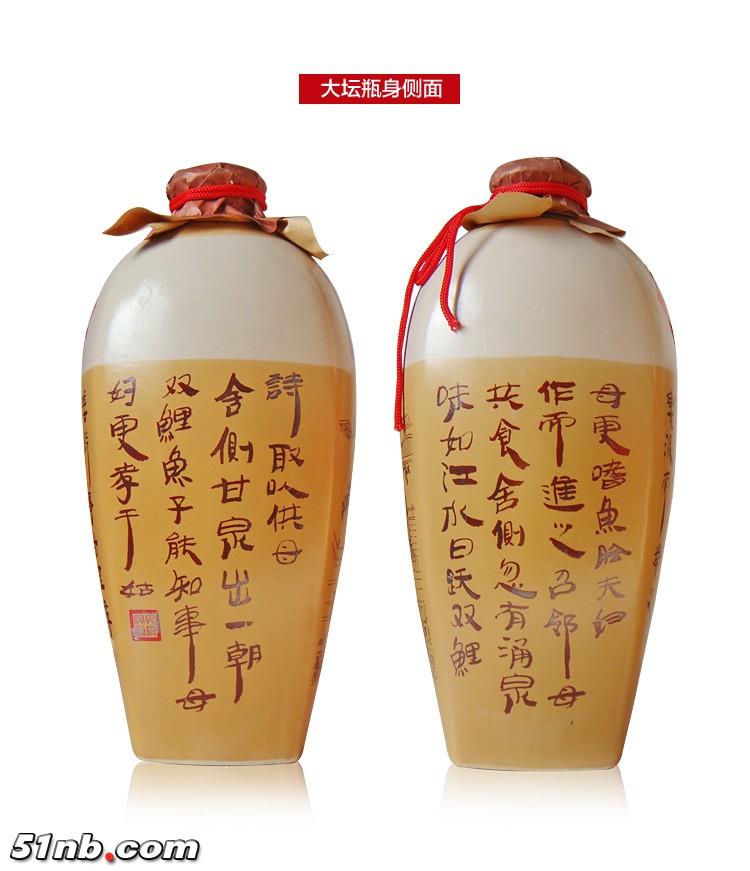 大坛瓶身侧面
詩取以供母
舍側甘泉出一朝
双鯉魚子能知事母
妇更孝于姑
母更嗜魚膾夫婦
作而進之召邻母
共食舍側忽有涌泉
味如江水日跃双鯉
51nb.com